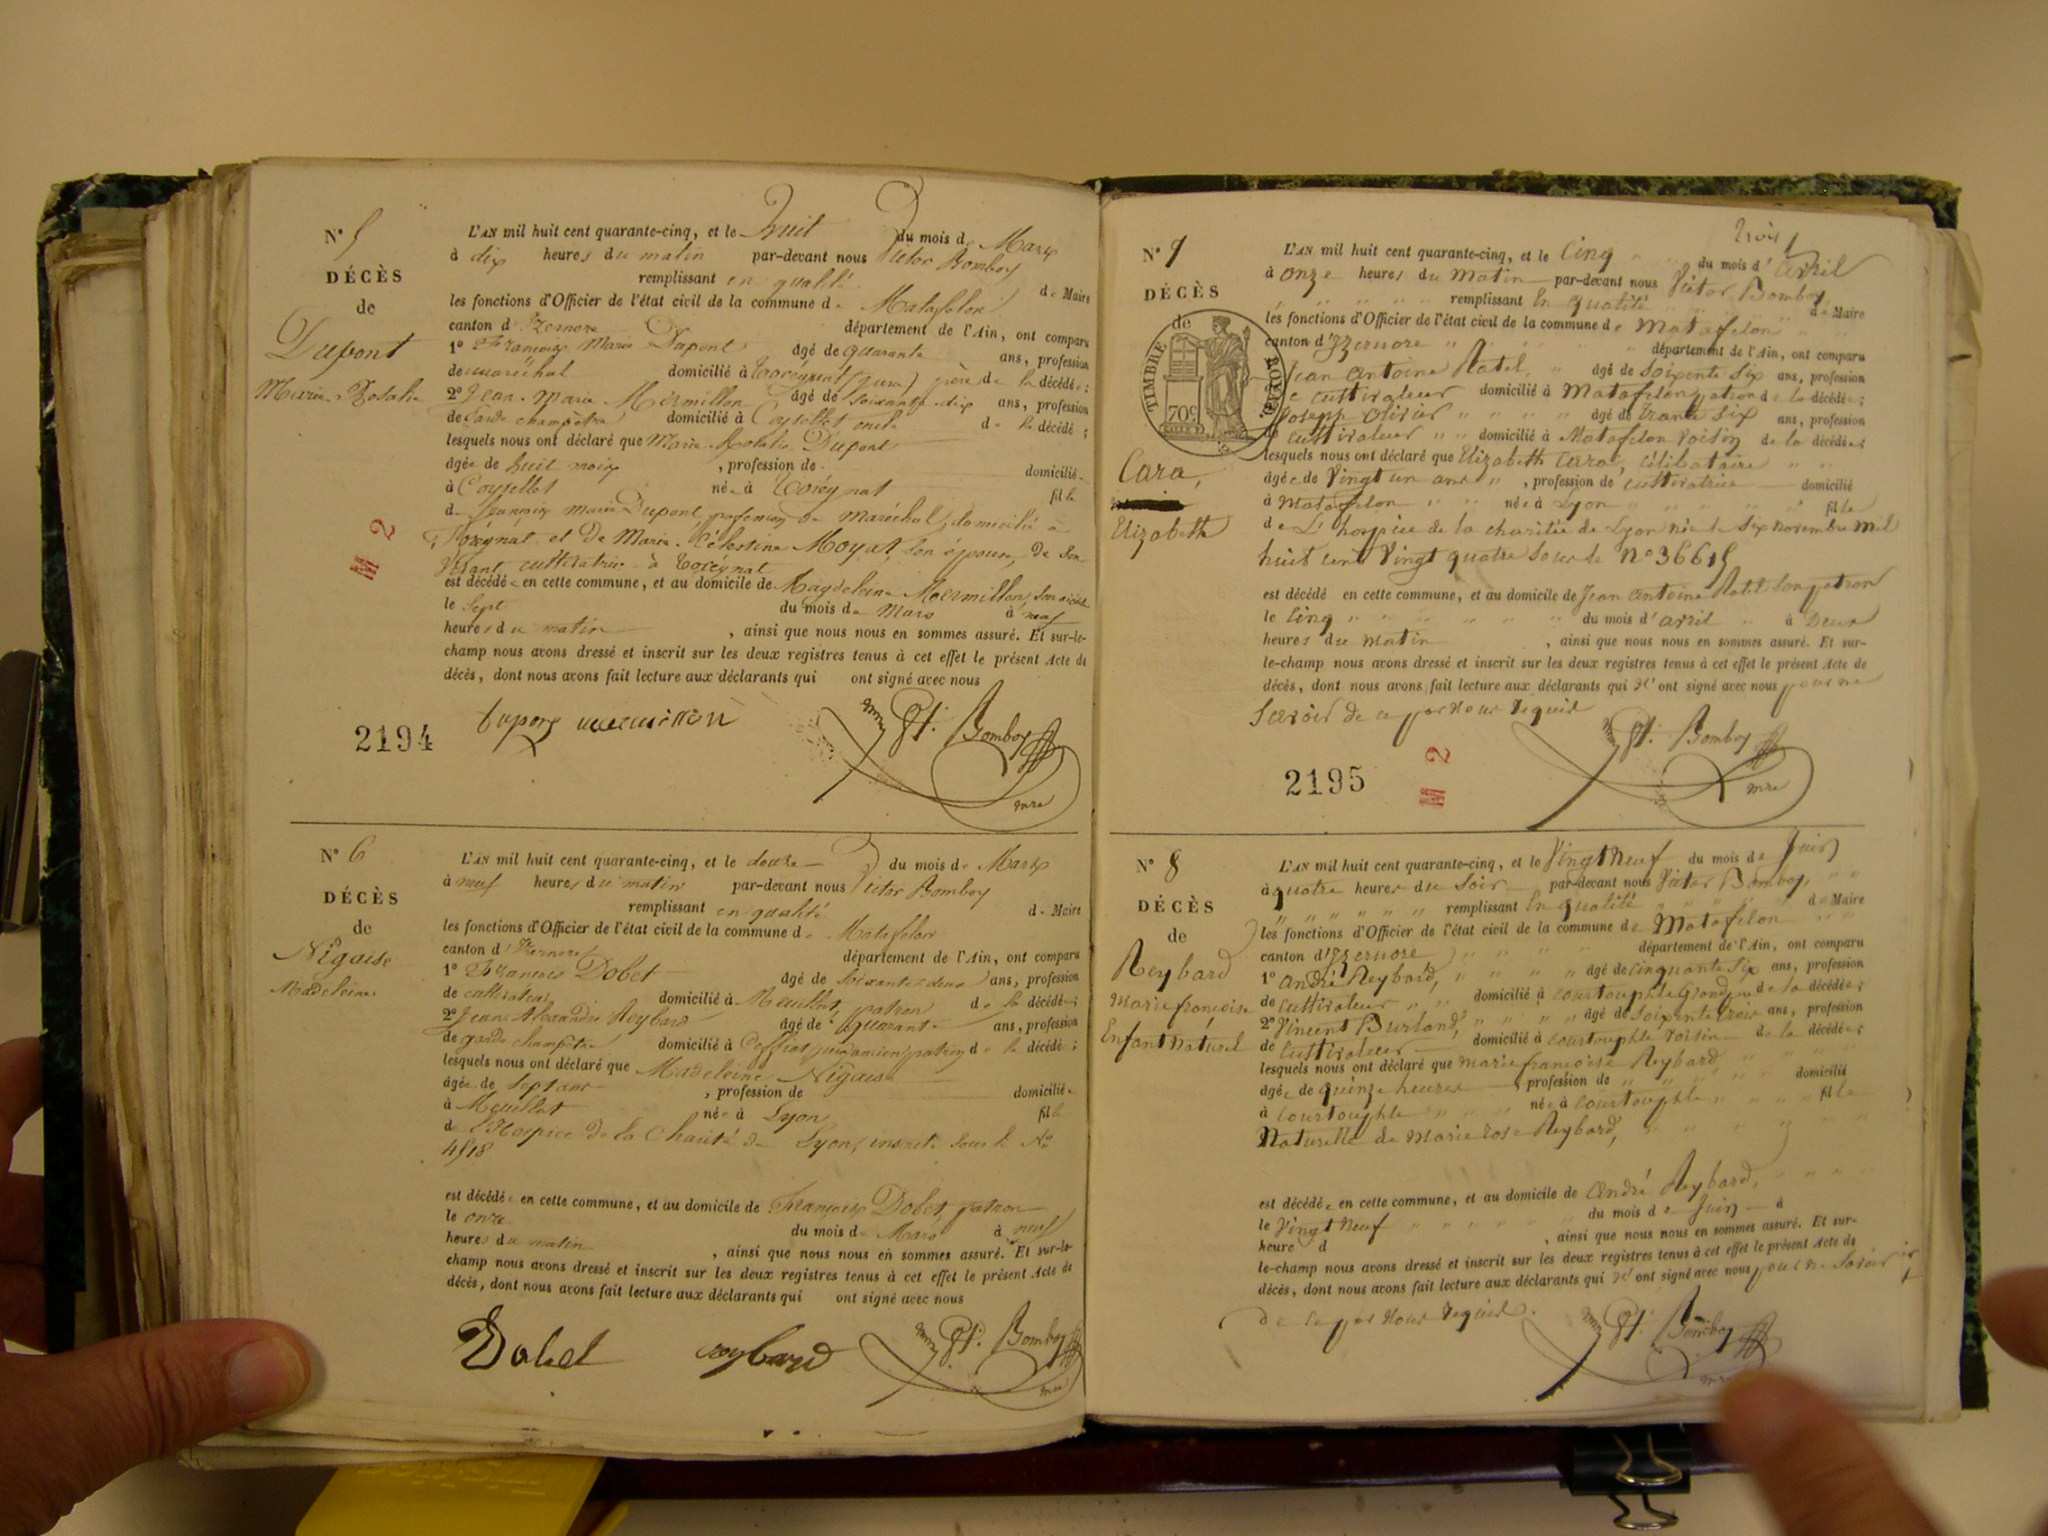 N° 5
DÉCÈS
de
Dupont
Marie-Rosalie
L'AN mil huit cent quarante-cinq, et le huit du mois de Mars
à dix heures du matin par-devant nous Victor Bomboy
remplissant en qualité de Maire
les fonctions d'Officier de l'état civil de la commune de Matafelon
canton d'Izernore département de l'Ain, ont comparu
1° François Marie Dupont âgé de quarante ans, profession
de maréchal domicilié à (jura) père de la décédée;
2° Jean-Marie Mermillon âgé de soixante-dix ans, profession
de Garde champêtre domicilié à Coysellet oncle de la décédée;
lesquels nous ont déclaré que Marie Rosalie Dupont
âgée de huit mois, profession de domiciliée
à Coysellet née à fille
de François Marie Dupont profession de Maréchal, domicilié à
et de Marie-Célestine Moyat son épouse, de son
Vivant cultivatrice à
est décédée en cette commune, et au domicile de Magdeleine Mermillon, son
le Sept du mois de Mars à neuf
heures du matin, ainsi que nous nous en sommes assuré. Et sur-le-
champ nous avons dressé et inscrit sur les deux registres tenus à cet effet le présent Acte de
décès, dont nous avons fait lecture aux déclarants qui ont signé avec nous
2194
Bomboy
mre
N° 6
DÉCÈS
de
Nigaise
Madeleine
L'AN mil huit cent quarante-cinq, et le douze du mois de Mars
à neuf heures du matin par-devant nous Victor Bomboy
remplissant en qualité de Maire
les fonctions d'Officier de l'état civil de la commune de Matafelon
canton d'Izernore département de l'Ain, ont comparu
1° François Dobet âgé de soixante-deux ans, profession
de cultivateur domicilié à Meuillat, patron de la décédée;
2° Jean Alexandre Reybard âgé de quarante ans, profession
de garde champêtre domicilié à ancien patron de la décédée;
lesquels nous ont déclaré que Madeleine Nigaise
âgée de sept ans, profession de domiciliée
à Meuillat née à Lyon fille
de l'Hospice de la Charité de Lyon, inscrite sous le No
4518
est décédée en cette commune, et au domicile de François Dobet, patron
le onze du mois de Mars à neuf
heures du matin, ainsi que nous nous en sommes assuré. Et sur-le-
champ nous avons dressé et inscrit sur les deux registres tenus à cet effet le présent Acte de
décès, dont nous avons fait lecture aux déclarants qui ont signé avec nous
Dobet reybard Bomboy
mre
N° 7
DÉCÈS
de
TIMBRE ROYAL
70c
Cara,
Elizabeth
L'AN mil huit cent quarante-cinq, et le Cinq du mois d'avril
à onze heures du matin par-devant nous Victor Bomboy,
remplissant en qualité de Maire
les fonctions d'Officier de l'état civil de la commune de Matafelon
canton d'Izernore département de l'Ain, ont comparu
Jean Antoine Ratel, âgé de Soixente Six ans, profession
de cultivateur domicilié à Matafelon patron de la décédée;
Joseph Olivier âgé de trante Six ans, profession
de cultivateur domicilié à Matafelon voisin de la décédée;
lesquels nous ont déclaré que Elizabeth Cara, célibataire
âgée de Vingt un ans, profession de cultivatrice domicilié
à Matafelon née à Lyon fille
de L'hospice de la charitée de Lyon née le Six novembre mil
huit cent Vingt quatre Sous le n° 36615
est décédé en cette commune, et au domicile de Jean Antoine Ratel Son patron
le Cinq du mois d'avril à Deux
heures du matin, ainsi que nous nous en sommes assuré. Et sur-
le-champ nous avons dressé et inscrit sur les deux registres tenus à cet effet le présent Acte de
décès, dont nous avons fait lecture aux déclarants qui n'ont signé avec nous pour ne
Savoir de ce par Nous requis
Bomboy
mre
2195
N° 8
DÉCÈS
de
Reybard
Marie françoise
Enfant Naturel
L'AN mil huit cent quarante-cinq, et le Vingt Neuf du mois de Juin
à quatre heures du Soir par-devant nous Victor Bomboy,
remplissant en qualité de Maire
les fonctions d'Officier de l'état civil de la commune de Matafelon
canton d'Izernore département de l'Ain, ont comparu
1° André Reybard, âgé de cinquante Six ans, profession
de Cultivateur domicilié à courtouphle de la décédée;
2° Vincent Burland, âgé de Soixente trois ans, profession
de Cultivateur domicilié à courtouphle Voisin de la décédée;
lesquels nous ont déclaré que marie françoise Reybard
âgée de quinze heures, profession de domicilié
à courtouphle née à courtouphle fille
Naturelle de Marie rose Reybard,
est décédée en cette commune, et au domicile de André Reybard,
le Vingt Neuf du mois de Juin à
heure d , ainsi que nous nous en sommes assuré. Et sur-
le-champ nous avons dressé et inscrit sur les deux registres tenus à cet effet le présent Acte de
décès, dont nous avons fait lecture aux déclarants qui n'ont signé avec nous pour ne Savoir
de ce par Nous requis.
Bomboy